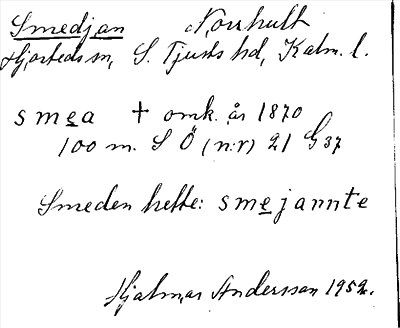 Smedjan Norrhult
Hjorteds sn, S. Tjusts hd, Kalm. l.
smea † omk. år 1870
100 m. S Ö (n:r) 21 G37
Smeden hette: smejannte
Hjalmar Andersson 1952.